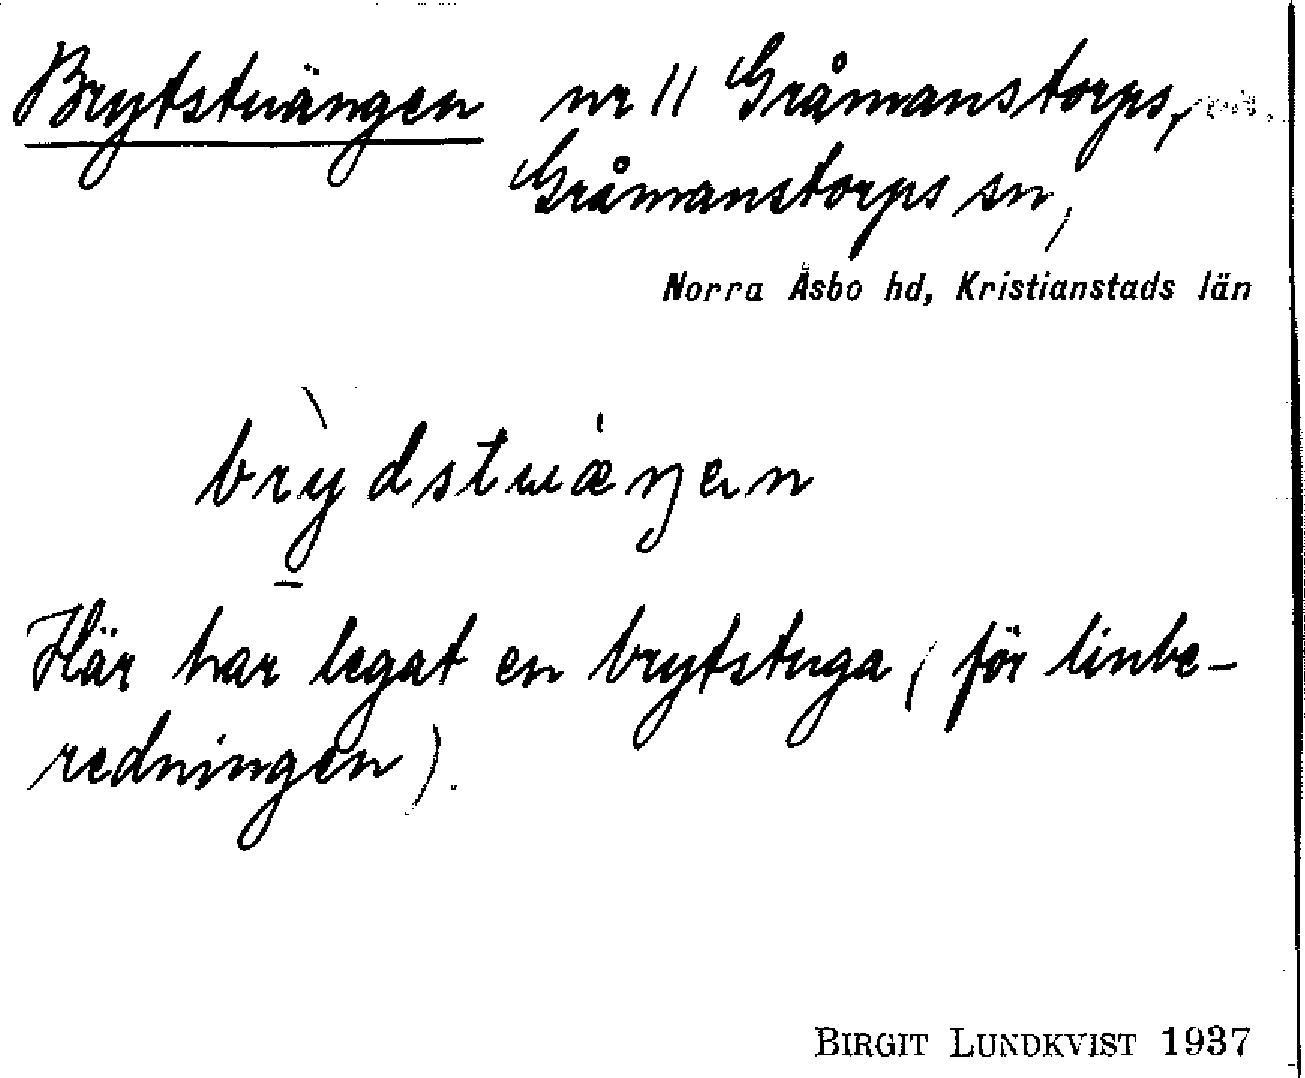 Brytstuängen nr 11 Gråmanstorps,
Gråmanstorps sn,
Norra Åsbo hd, Kristianstads län
brỳdstuæŋen
Här har legat en brytstuga (för linbe-
redningen).
BIRGIT LUNDKVIST 1937